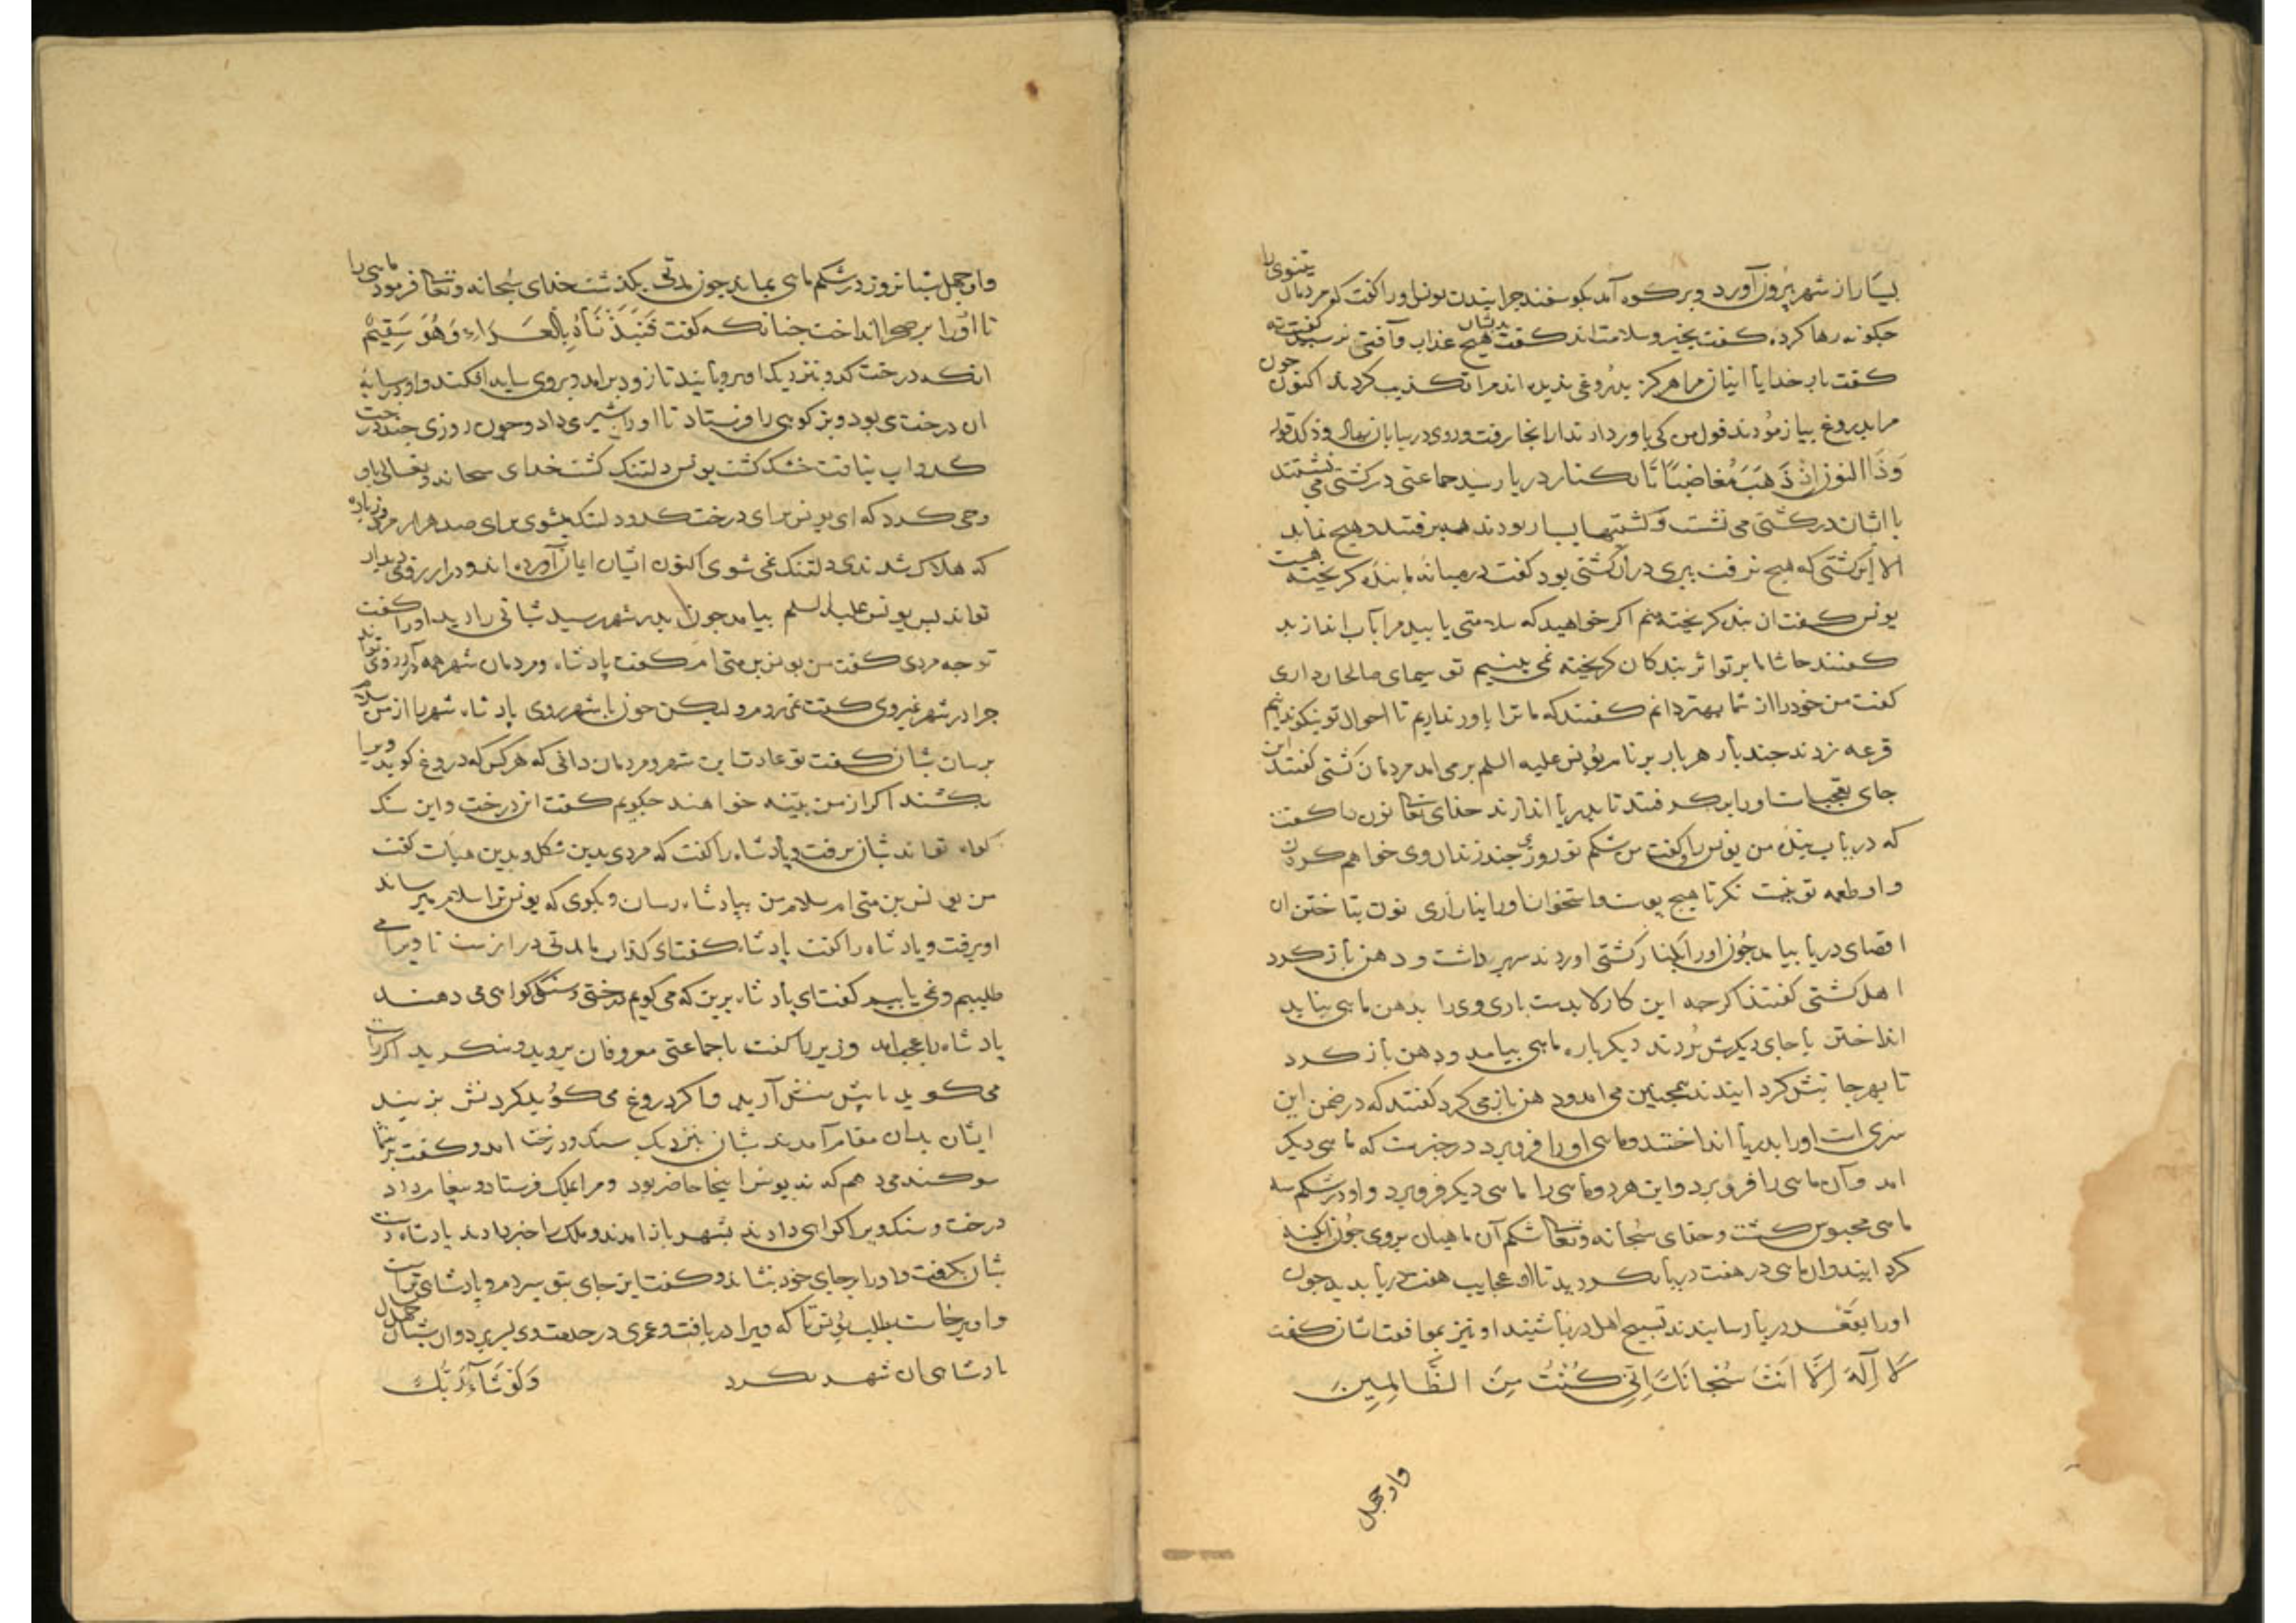 بسیار از شهر بیرون آورد و بر کوه آمد بکوسفند جرانیدن یونس اورا کفت کو مردمان نینوی را
جکونه رها کردی کفت بخیر و سلامت اند کفت بدیشان هیچ عذاب و آفتی نرسید کفت نه
کفت بار خدایا اینان مرا هرکز بدروغی ندیده اند مرا تکذیب کردند اکنون جون
مرا بدروغ بیازمودند قول من کی باور دارند از انجا برفت و روی در بیابان نهاد
وَذَا النون إِذْ ذَهَبَ مُغَاضِبًا تا بکنار دریا رسید جماعتی در کشتی می نشستند
با ایشان در کشتی می نشست و کشتیها بسیار بودند همه برفتند و هیچ نماند
الا این کشتی که هیچ نرفت پیری دران کشتی بود کفت در میانه ما بنده کریخته هست
یونس کفت ان بنده کریخته منم اکر خواهید که سلامتی یابید مرا بآب اندازید
کفتند حاشا ما بر تو اثر بندکان کریخته نمی بینیم تو سیمای صالحان داری
کفت من خود را از شما بهتر دانم کفتند که ما ترا باور نداریم تا احوال تو نیکو ندانیم
قرعه زدند جند بار هر بار بر نام یونس علیه السلم برمی امد مردمان کشتی کفتند این
جای تعجبست اورا برکرفتند تا بدریا اندازند خدای تعا نون را کفت
که دریاب بنده من یونس را و کفت من شکم تو روزی جند زندان وی خواهم کردن
و او طعمه تو نیست نکر تا هیچ پوست و استخوان اورا نیازاری نون بتاختن از
اقصای دریا بیامد جون اورا بکنار کشتی اوردند سر برداشت و دهن باز کرد
اهل کشتی کفتند اکر جه این کار لابدست باری وی را بدهن ماهی نباید
انداختن با جای دیکرش بردند دیکر باره ماهی بیامد و دهن باز کرد
تا بهر جانبش کردانیدند همجنین می امد و دهن باز می کرد کفتند که در ضمن این
سری است اورا بدریا انداختند و ماهی اورا فرو برد در خبرست که ماهی دیکر
امد و آن ماهی را فرو برد و این هر دو ماهی را ماهی دیکر فرو برد و او در شکم سه
ماهی محبوس کشت و خدای سُبحانه و تعا شکم آن ماهیان بر وی جون ابکینه
کردانید و ان ماهی در هفت دریا بکردید تا او عجایب هفت دریا بدید جون
اورا بقعر دریا رسانیدند تسبیح اهل دریا شنید او نیز بموافقت ایشان کفت
لَا آلهَ إِلَّا اَنْتَ سُبْحَانَكَ اِنِّي كُنْتُ مِنَ الظَّالِمِينَ
واو جهل
واو جهل شبانروز در شکم ماهی بماند جون مدتی بکذشت خدای سُبحانه و تعا فرمود ماهی را
تا اورا بر صحرا انداخت جنانکه کفت فَنَبَذْنَاهُ بِالْعَرَاءِ وَهُوَ سَقِيمٌ
انکه درخت کدو بنزدیک او برویانید تا زود برامد و بر وی سایه افکند و او در سایهٔ
ان درخت می بود و بز کوهی را فرستاد تا اورا شیر می داد و جون روزی جند درخت
کدو اب نیافت خشک کشت یونس دلتنک کشت خدای سبحانه و تعالی باو
وحی کرد که ای یونس برای درخت کدو دلتنک میشوی برای صد هزار مرد و زیاده
که هلاک شدندی دلتنک نمی شوی اکنون ایشان ایمان آورده اند و در ارزوی دیدار
تواند بس یونس علیه السلم بیامد جون بدر شهر رسید شبانی را دید اورا کفت
تو جه مردی کفت من یونس بن متی ام کفت پادشاه و مردمان شهر همه در آرزوی تواند
جرا در شهر نمیروی کفت نمی روم و لیکن جون با شهر روی پادشاه شهر را از من سلام
برسان شبان کفت تو عادت این شهر و مردمان دانی که هر کس که دروغ کوید ویرا
بکشند اکر از من بیّنه خواهند جکویم کفت این درخت و این سنک
کواه تواند شبان برفت و پادشاه را کفت که مردی بدین شکل و بدین هیأت کفت
من یونس بن متی ام سلام من بپادشاه رسان و بکوی که یونس ترا سلام میرساند
او برفت و پادشاه را کفت پادشاه کفت ای کذاب ما مدتی دراز ست تا ویرا می
طلبیم و نمی یابیم کفت ای پادشاه برین که می کویم درختی و سنکی کواهی می دهند
پادشاه را عجب امد وزیر را کفت با جماعتی معروفان بروید و بنکرید اکر راست
می کوید با پیش منش آرید و اکر دروغ می کوید کردنش بزنید
ایشان بدان مقام آمدند شبان بنزدیک سنک و درخت امد و کفت بر شما
سوکند می دهم که نه یونس اینجا حاضر بود و مرا بملک فرستاد و بیغام داد
درخت و سنک ویرا کواهی دادند بشهر باز امدند و ملک را خبر دادند پادشاه دست
شبان بکرفت و اورا بر جای خود بنشاند و کفت این جای بتو سپردم و پادشاهی تراست
و او برخاست بطلب یونس تا که ویرا دریافت و عمری در خدمت وی بسر برد و ان شبان جهل سال
پادشاهی ان شهر بکرد وَلَوْ شَآءَ رَبُّكَ